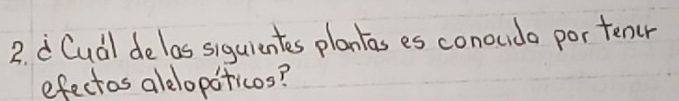 2. ¿Cuál de las siguientes plantas es conocida por tener
efectos alelopáticos?